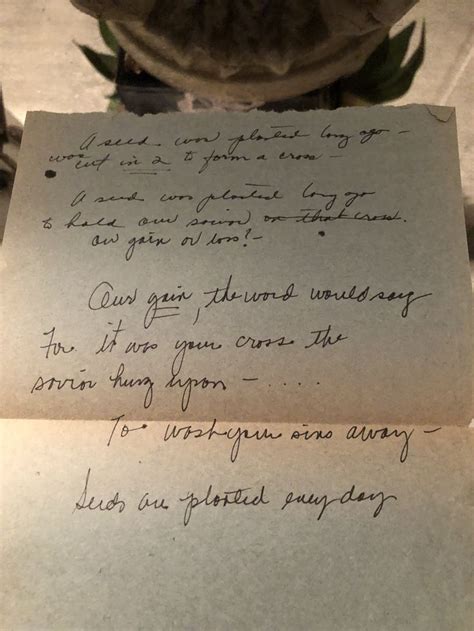 A seed was planted long ago –
was cut in 2 to form a cross –
A seed was planted long ago
to hold our savior on that cross.
our gain or loss? –
Our gain, the word would say
For it was your cross the
savior hung upon – . . . . .
To wash your sins away –
Seeds are planted every day